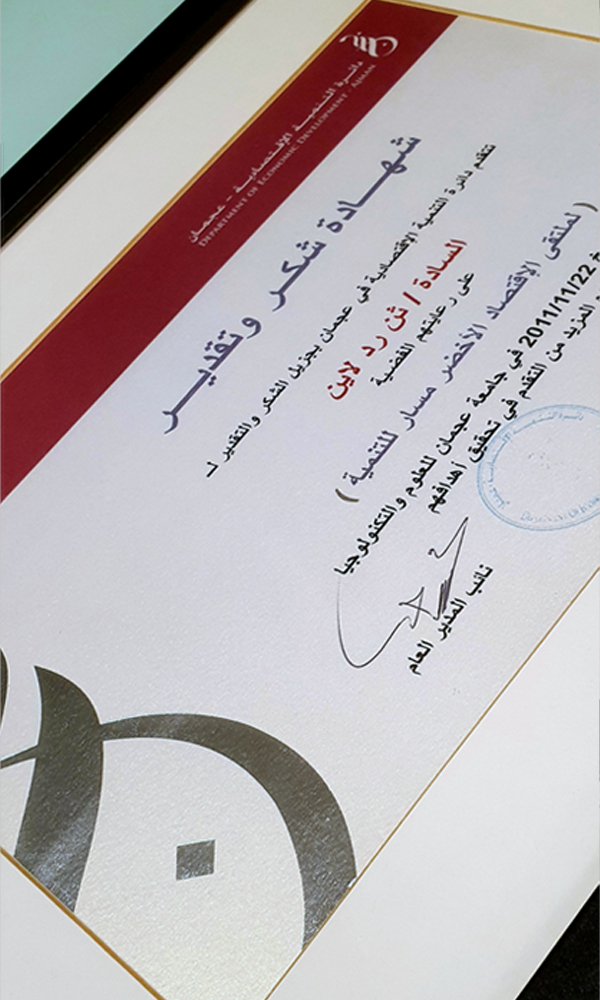 دائرة التنمية الإقتصادية - عجمان
DEPARTMENT OF ECONOMIC DEVELOPMENT - AJMAN
شهادة شكر وتقدير
تتقدم دائرة التنمية الإقتصادية في عجمان بجزيل الشكر والتقدير لـ
السادة / ثن رد لاين
على رعايتهم الفضية
( لملتقى الإقتصاد الأخضر مسار للتنمية )
2011/11/22 في جامعة عجمان للعلوم والتكنولوجيا
المزيد من التقدم في تحقيق أهدافهم
نائب المدير العام